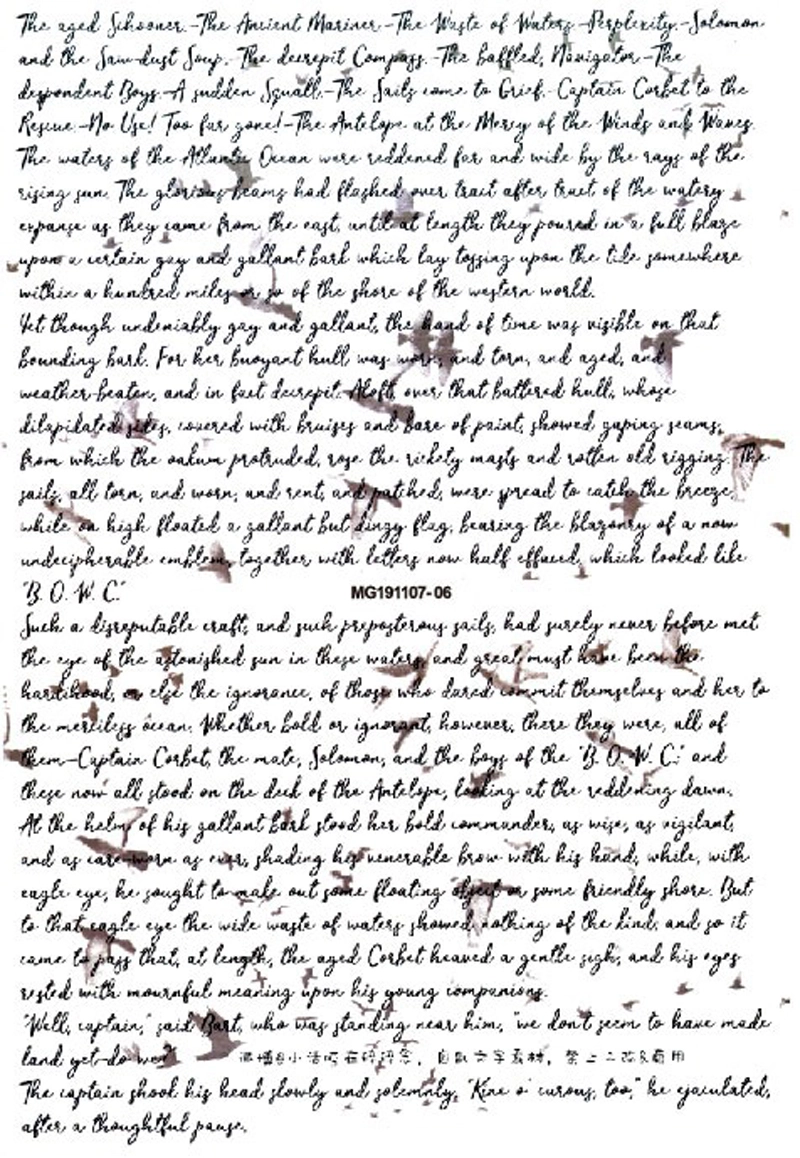 The aged Schooner.-The Ancient Mariner-The Waste of Waters.-Perplexity.-Solomon
and the Saw-dust Soup.-The decrepit Compass.-The baffled, Navigator-The
despondent Boys.-A sudden Squall.-The Sails come to Grief.-Captain Corbet to the
Rescue.-No Use! Too far gone!-The Antelope at the Mercy of the Winds and Waves.
The waters of the Atlantic Ocean were reddened far and wide by the rays of the
rising sun. The glorious beams had flashed over tract after tract of the watery
expanse as they came from the east, until at length they poured in a full blaze
upon a certain gay and gallant bark which lay tossing upon the tide somewhere
within a hundred miles or so of the shore of the western world.
Yet though undeniably gay and gallant, the hand of time was visible on that
bounding bark. For her buoyant hull was worn, and torn, and aged, and
weather-beaten, and in fact decrepit. Aloft, over that battered hull, whose
dilapidated sides, covered with bruises and bare of paint, showed gaping seams,
from which the oakum protruded, rose the rickety masts and rotten old rigging. The
sails, all torn, and worn, and rent, and patched, were spread to catch the breeze,
while on high floated a gallant but dingy flag, bearing the blazonry of a now
undecipherable emblem, together with letters now half effaced, which looked like
"B. O. W. C."
MG191107-06
Such a disreputable craft, and such preposterous sails, had surely never before met
the eye of the astonished sun in these waters, and great must have been the
hardihood, or else the ignorance, of those who dared commit themselves and her to
the merciless ocean. Whether bold or ignorant, however, there they were, all of
them—Captain Corbet, the mate, Solomon, and the boys of the "B. O. W. C.;" and
these now all stood on the deck of the Antelope, looking at the reddening dawn.
At the helm of his gallant bark stood her bold commander, as wise, as vigilant,
and as care-worn as ever, shading his venerable brow with his hand, while, with
eagle eye, he sought to make out some floating object or some friendly shore. But
to that eagle eye the wide waste of waters showed nothing of the kind, and so it
came to pass that, at length, the aged Corbet heaved a gentle sigh, and his eyes
rested with mournful meaning upon his young companions.
"Well, captain," said Bart, who was standing near him, "we don't seem to have made
land yet-do we?"
The captain shook his head slowly and solemnly. "Kine o' curous, too," he ejaculated,
after a thoughtful pause.